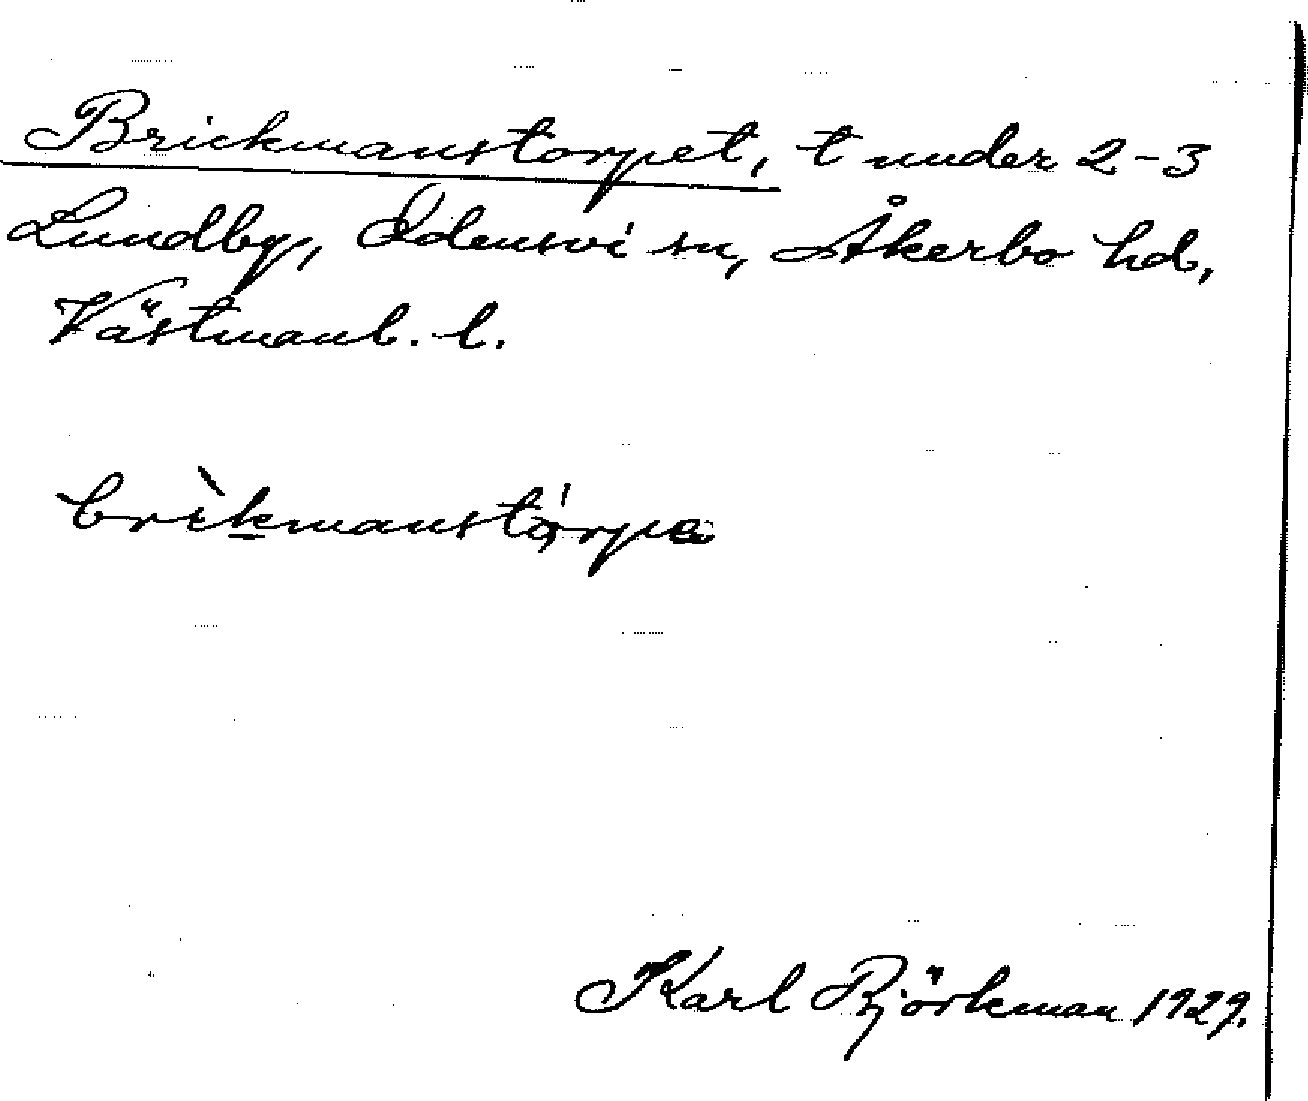 Brickmanstorpet, t under 2-3
Lundby, Odensvi sn, Åkerbo hd,
Västmanl. l.
brìkmanstó̜rpa
Karl Björkman 1929.